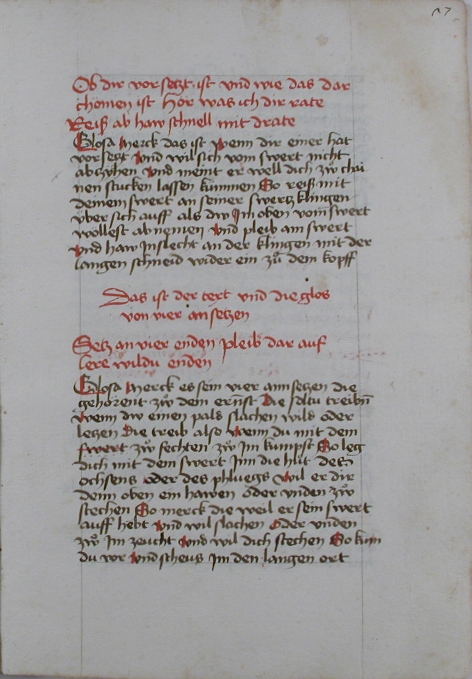 Ob dir vor setzt ist vnd wie das dar
chomen ist Hör was ich dir rate
Reiß ab haw schnell mit drate
Glosa Merck das ist wenn dir einer hat
vor setzt vnd wil sich vom swert nicht
abzyhen vnd meint er well dich zw chai
nen stucken lassen kummen So reiß mit
deinem swert an seiner swertz klingen
vber sich auff als dw Im oben vom swert
wollest ab nemen vnd pleib am swert
vnd haw Inslecht an der klingen mit der
langen schneid wider ein zü dem kopff
Das ist der text vnd die glos
von vier an setzen
Setz an vier enden pleib dar auf
lere wildu enden
Glosa Merck es sein vier ann setzen die
gehorent zw dem ernst Die soltu treibn
wenn dw einen pald slachen wild oder
letzen Die treib also Wenn du mit dem
swert zw fechten zw Im kumpst So leg
dich mit dem swert Inn die hüt des
ochsens oder des phluegs wil er dir
denn oben ein hawen oder vnden zw
stechen So merck die weil er sein swert
auff hebt vnd wil slachen Oder vnden
zw Im zeucht vnd wil dich stechen So kum
du vor vnd scheus Im den langen ort